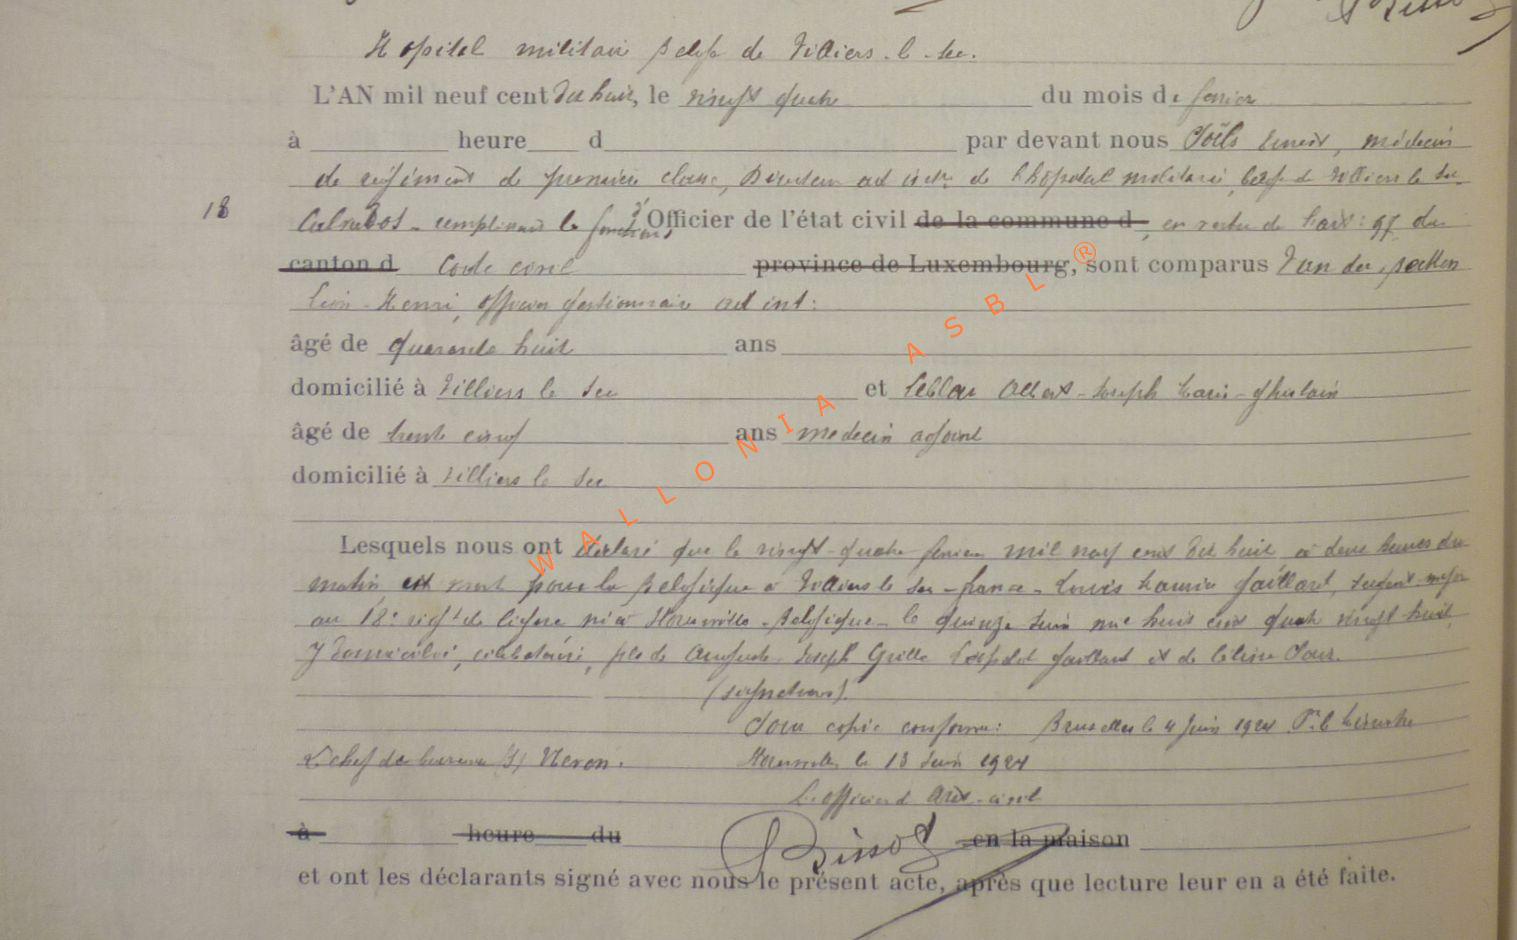 Hopital militaire Belge de Villiers-le-Sec.
L'AN mil neuf cent dix huit, le vingt quatre du mois de fevrier
à heure d par devant nous Ernest, médecin
de régiment de première classe, Directeur ad int. de l'hôpital militaire belge de Villiers le Sec
18
Calvados - remplissant les fonctions d'Officier de l'état civil de la commune d, en vertu de l'art: 97 du
canton d Code civil province de Luxembourg, sont comparus Van der
Léon-Henri, officier gestionnaire ad int:
âgé de quarante huit ans
domicilié à Villiers le Sec et Leblanc Albert-Joseph Marie-Ghislain
âgé de trente cinq ans médecin adjoint
domicilié à Villiers le Sec
Lesquels nous ont déclaré que le vingt-quatre fevrier mil neuf cent dix huit à deux heures du
matin est mort pour la Belgique à Villiers le Sec-france-Louis Gaillard, sergent-major
au 18e regt de ligne né à Houmville-Belgique-le quinze juin mil huit cent quatre vingt-huit,
y domicilié, célibataire, fils de Auguste Joseph Gaillard et de Céline
(signatures).
Pour copie conforme: Bruxelles le 4 Juin 1924 Pr. le Ministre
Le chef de bureau (s) Néron.
le 13 Juin 1924
L'officier d'état-civil
à heure du Bissot en la maison
et ont les déclarants signé avec nous le présent acte, après que lecture leur en a été faite.
WALLONIA ASBL ®